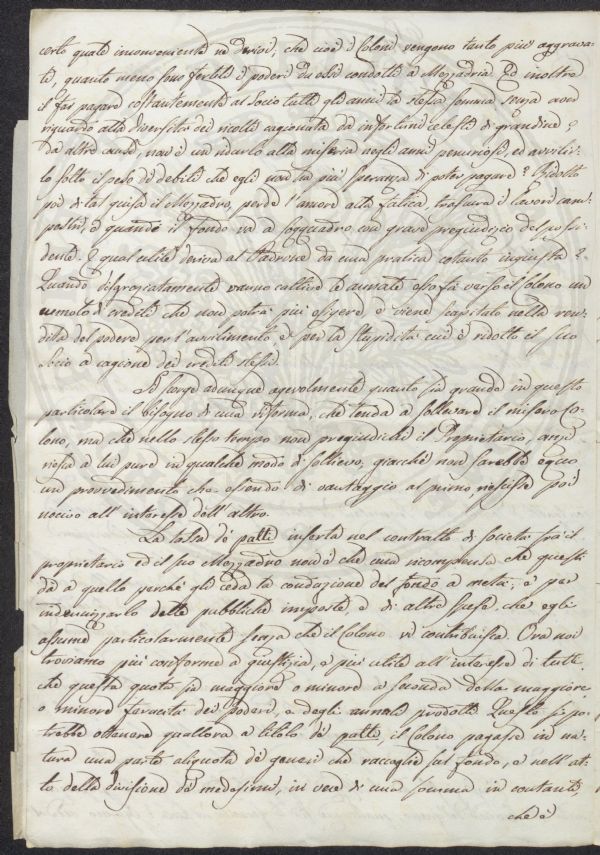 certo quale inconveniente ne derivi, che cioè i Coloni vengono tanto più aggrava-
ti, quanto meno sono feribili i poderi da essi condotti a Mezzadria. Ed inoltre
il far pagare costantemente al Socio tutti gli anni la stessa somma senza aver
riguardo alla diversità dei raccolti cagionata da infortuni celesti di grandine,
da altre cause, non è un ridurlo alla miseria negli anni penuriosi, ed avvilir-
lo sotto il peso di debiti che egli non ha più speranza di poter pagare? Ridotto
poi di tal guisa il Mezzadro, perde l'amore alla fatica, trascura i lavori cam-
pestri, e quando il fondo va a soqquadro con grave pregiudizio del possi-
dente. E qual utile deriva al Padrone da una pratica cotanto ingiusta?
Quando disgraziatamente vanno cattive le annate esso fa verso il Colono un
cumolo di crediti che non potrà più esigere, e viene scapitato nella ren-
dita del podere per l'avvilimento, e per la stupidità cui è ridotto il suo
Socio a cagione dei crediti stessi.
Si scorge adunque agevolmente quanto sia grande in questo
particolare il bisogno di una riforma, che tenda a sollevare il misero Co-
lono, ma che nello stesso tempo non pregiudichi il Proprietario, anzi
riesca a lui pure in qualche modo di sollievo, giacchè non sarebbe equo
un provvedimento che essendo di vantaggio al primo, riuscisse poi
nocivo all'interesse dell'altro.
La tassa de' patti inserta nel contratto di Società fra il
proprietario ed il suo Mezzadro non è che una ricompensa che questi
dà a quello perchè gli ceda la conduzione del fondo a metà, e per
indennizzarlo delle pubbliche imposte, e di altre spese, che egli
assume particolarmente senza che il Colono vi contribuisca. Ora noi
troviamo più conforme a giustizia, e più utile all'interesse di tutti
che questa quota sia maggiore o minore a seconda della maggiore
o minore feracità dei poderi, e degli annuali prodotti. Questo si po-
trebbe ottenere qualora a titolo de' patti, il Colono pagasse in na-
tura una parte aliquota de' generi che raccoglie sul fondo, e nell'at-
to della divisione de' medesimi, in vece di una somma in contanti,
che è